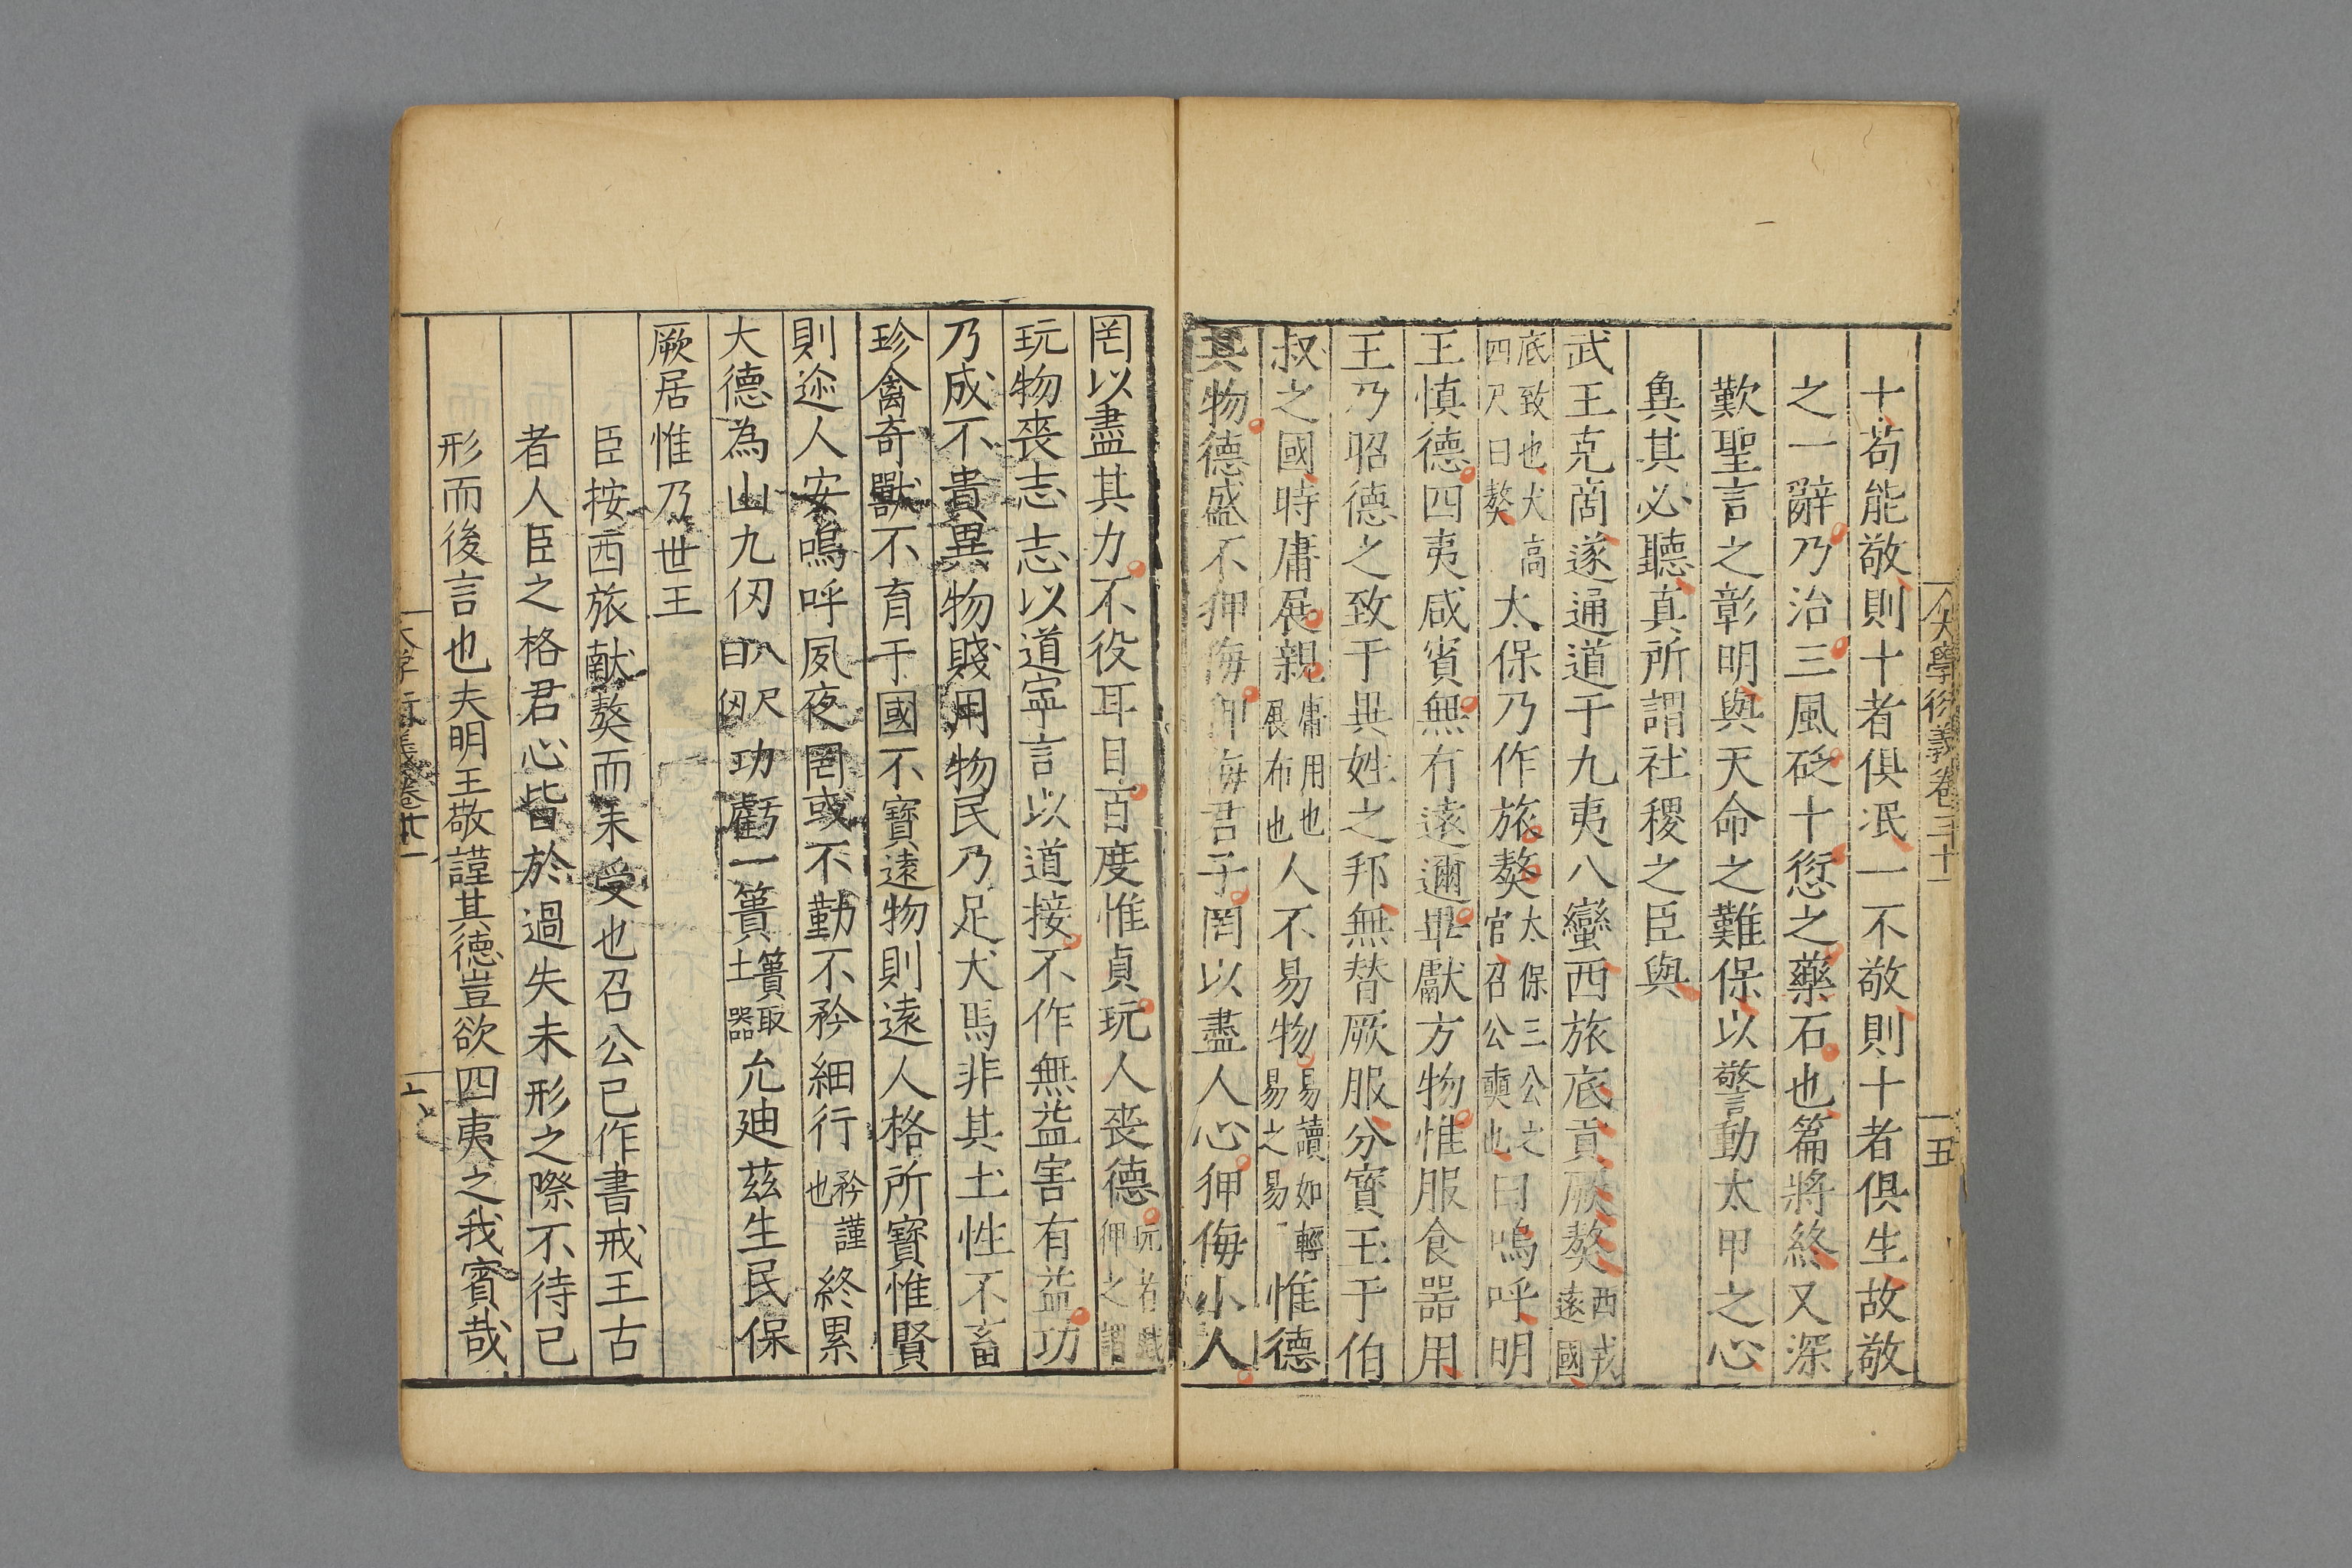 大學衍義卷三十一 五
十苟能敬則十者俱泯一不敬則十者俱生故敬
之一辭乃治三風砭十愆之藥石也篇將終又深
歎聖言之彰明與天命之難保以警動太甲之心
兾其必聽真所謂社稷之臣與
武王克啇遂通道于九夷八蠻西旅底貢厥獒西戎遠國
底致也犬高四尺曰獒太保乃作旅獒太保三公之官召公奭也曰嗚呼明
王慎德四夷咸賓無有遠邇畢獻方物惟服食器用
王乃昭德之致于異姓之邦無替厥服分寳玉于伯
叔之國時庸展親庸用也展布也人不易物易讀如輕易之易惟德
其物德盛不狎侮狎侮君子罔以盡人心狎侮小人
罔以盡其力不役耳目百度惟貞玩人丧德玩者戲狎之謂
玩物丧志志以道寧言以道接不作無益害有益功
乃成不貴異物賤用物民乃足犬馬非其土性不畜
珍禽奇獸不育于國不寳遠物則遠人格所寳惟賢
則迩人安嗚呼夙夜罔或不勤不矜細行矜謹也終累
大德為山九仞八尺曰仞功虧一簣簣取土器允迪茲生民保
厥居惟乃世王
臣按西旅献獒而未受也召公已作書戒王古
者人臣之格君心皆於過失未形之際不待已
形而後言也夫明王敬謹其德豈欲四夷之我賓哉